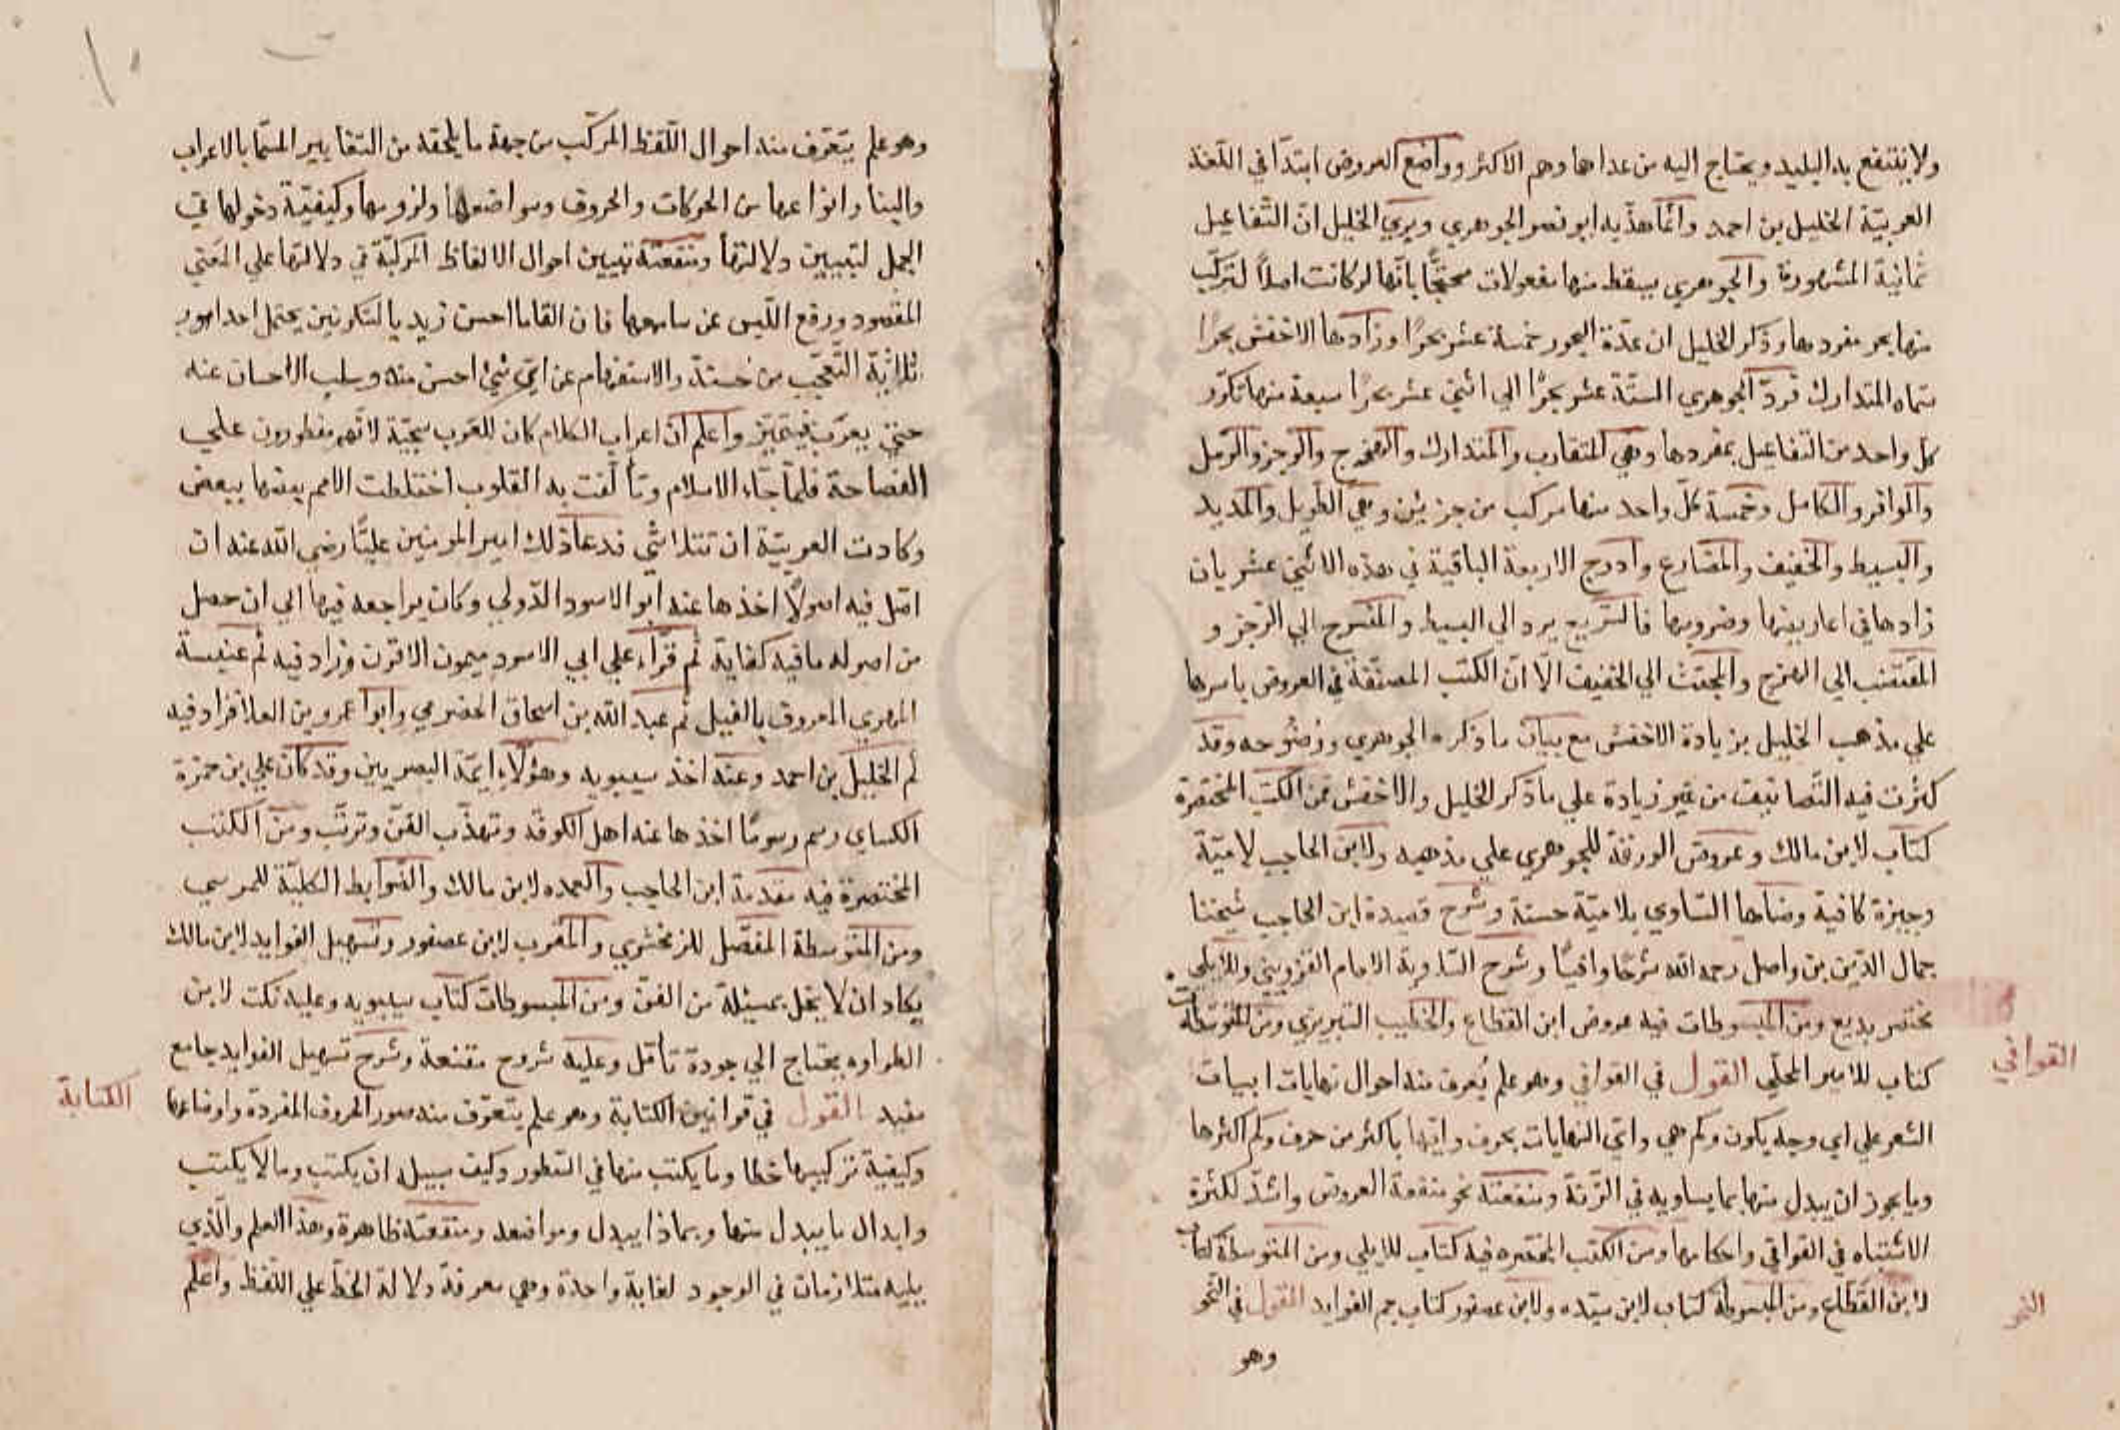 ولا ينتفع به البليد ويحتاج اليه من عداهما وهم الاكثر وواضع العروض ابتدا في اللغة
العربية الخليل بن احمد وانما هذبه ابو نصر الجوهري ويري الخليل ان التفاعيل
ثمانية المشهورة والجوهري يسقط منها مفعولات محتجا بانها لو كانت اصلا لتركب
منها بحر مفردها وذكر الخليل ان عدة البحور خمسة عشر بحرا وزادها الاخفش بحرا
سماه المتدارك فرد الجوهري الستة عشر بحرا الي اثني عشر بحرا سبعة منها تكرر
كل واحد من التفاعيل بمفردها وهي المتقارب والمتدارك والهزج والرجز والرمل
والوافر والكامل وخمسة كل واحد منها مركب من جزئين وهي الطويل والمديد
والبسيط والخفيف والمضارع وادرج الاربعة الباقية في هذه الاثني عشر بان
زادها في اعاريضها وضروبها فالسريع يرد الي البسيط والمنسرح الي الرجز و
المقتضب الي الهزج والمجتث الي الخفيف الا ان الكتب المصنفة في العروض باسرها
علي مذهب الخليل بزيادة الاخفش مع بيان ما ذكره الجوهري ووضوحه وقد
كثرت فيه التصانيف من غير زيادة علي ما ذكر الخليل والاخفش فمن الكتب المختصرة
كتاب لابن مالك وعروض الورقة للجوهري علي مذهبه ولابن الحاجب لامية
وجيزة كافية وضاهاها الساوي بلامية حسنة وشرح قصيدة ابن الحاجب شيخنا
جمال الدين بن واصل رحمه الله شرحا وافيا وشرح الساوية الامام القزويني وللايلي
مختصر بديع ومن المبسوطات فيه عروض ابن القطاع والخطيب التبريزي ومن المتوسطات
كتاب للامير المحلي القول في القوافي وهو علم يعرف منه احوال نهايات ابيات
القوافي
الشعر علي اي وجه يكون وكم هي واي النهايات بحرف وايها باكثر من حرف وكم اكثرها
وما يجوز ان يبدل منها بما يساويه في الزنة ومنفعته نحو منفعة العروض واشد لكثرة
الاشتباه في القوافي واحكامها ومن الكتب المختصره فيه كتاب للايلي ومن المتوسطة كتاب
لابن القطاع ومن المبسوطة كتاب لابن سيده ولابن عصفور كتاب جم الفوايد القول في النحو
النحو
وهو
وهو علم يتعرف منه احوال اللفظ المركب من جهة ما يلحقه من التغايير المسما بالاعراب
والبنا وانواعها من الحركات والحروف ومواضعها ولزومها وكيفية دخولها في
الجمل لتبيين دلالتها ومنفعته تبيين احوال الالفاظ المركبة في دلالتها علي المعني
المقصود ورفع اللبس عن سامعها فان القائل ما احسن زيد بالسكونين يحتمل احد امور
ثلاثة التعجب من حسنه والاستفهام عن اي شئ احسن منه وسلب الاحسان عنه
حتي يعرب فيتميز واعلم ان اعراب الكلام كان للعرب سجية لانهم مفطورون علي
الفصاحة فلما جاء الاسلام وتألفت به القلوب اختلطت الامم بعضها ببعض
وكادت العربية ان تتلاشي فدعا ذلك امير المومنين عليا رضي الله عنه ان
اصل فيه اصولا اخذها عنه ابو الاسود الدولي وكان يراجعه فيها الي ان حصل
من اصوله ما فيه كفاية ثم قراء علي ابي الاسود ميمون الاقرن وزاد فيه ثم عنبسة
المهري المعروف بالفيل ثم عبد الله بن اسحاق الحضرمي وابوا عمرو بن العلا فزاد فيه
ثم الخليل بن احمد وعنه اخذ سيبويه وهؤلاء ايمة البصريين وقد كان علي بن حمزة
الكساي رسم رسوما اخذها عنه اهل الكوفة وتهذب الفن وترتب ومن الكتب
المختصرة فيه مقدمة ابن الحاجب والعمده لابن مالك والضوابط الكلية للمرسي
ومن المتوسطة المفصل للزمخشري والمقرب لابن عصفور وتسهيل الفوايد لابن مالك
يكاد ان لا يخل بمسئلة من الفن ومن المبسوطات كتاب سيبويه وعليه نكت لابن
الطراوه يحتاج الي جودة تأمل وعليه شروح مقنعة وشرح تسهيل الفوايد جامع
مفيد القول في قوانين الكتابة وهو علم يتعرف منه صور الحروف المفردة واوضاعها
الكتابة
وكيفية تركيبها خطا وما يكتب منها في السطور وكيف سبيله ان يكتب وما لا يكتب
وابدال ما يبدل منها وبماذا يبدل ومواضعه ومنفعته ظاهرة وهذا العلم والذي
يليه متلازمان في الوجود لغاية واحدة وهي معرفة دلالة الخط علي اللفظ واعلم